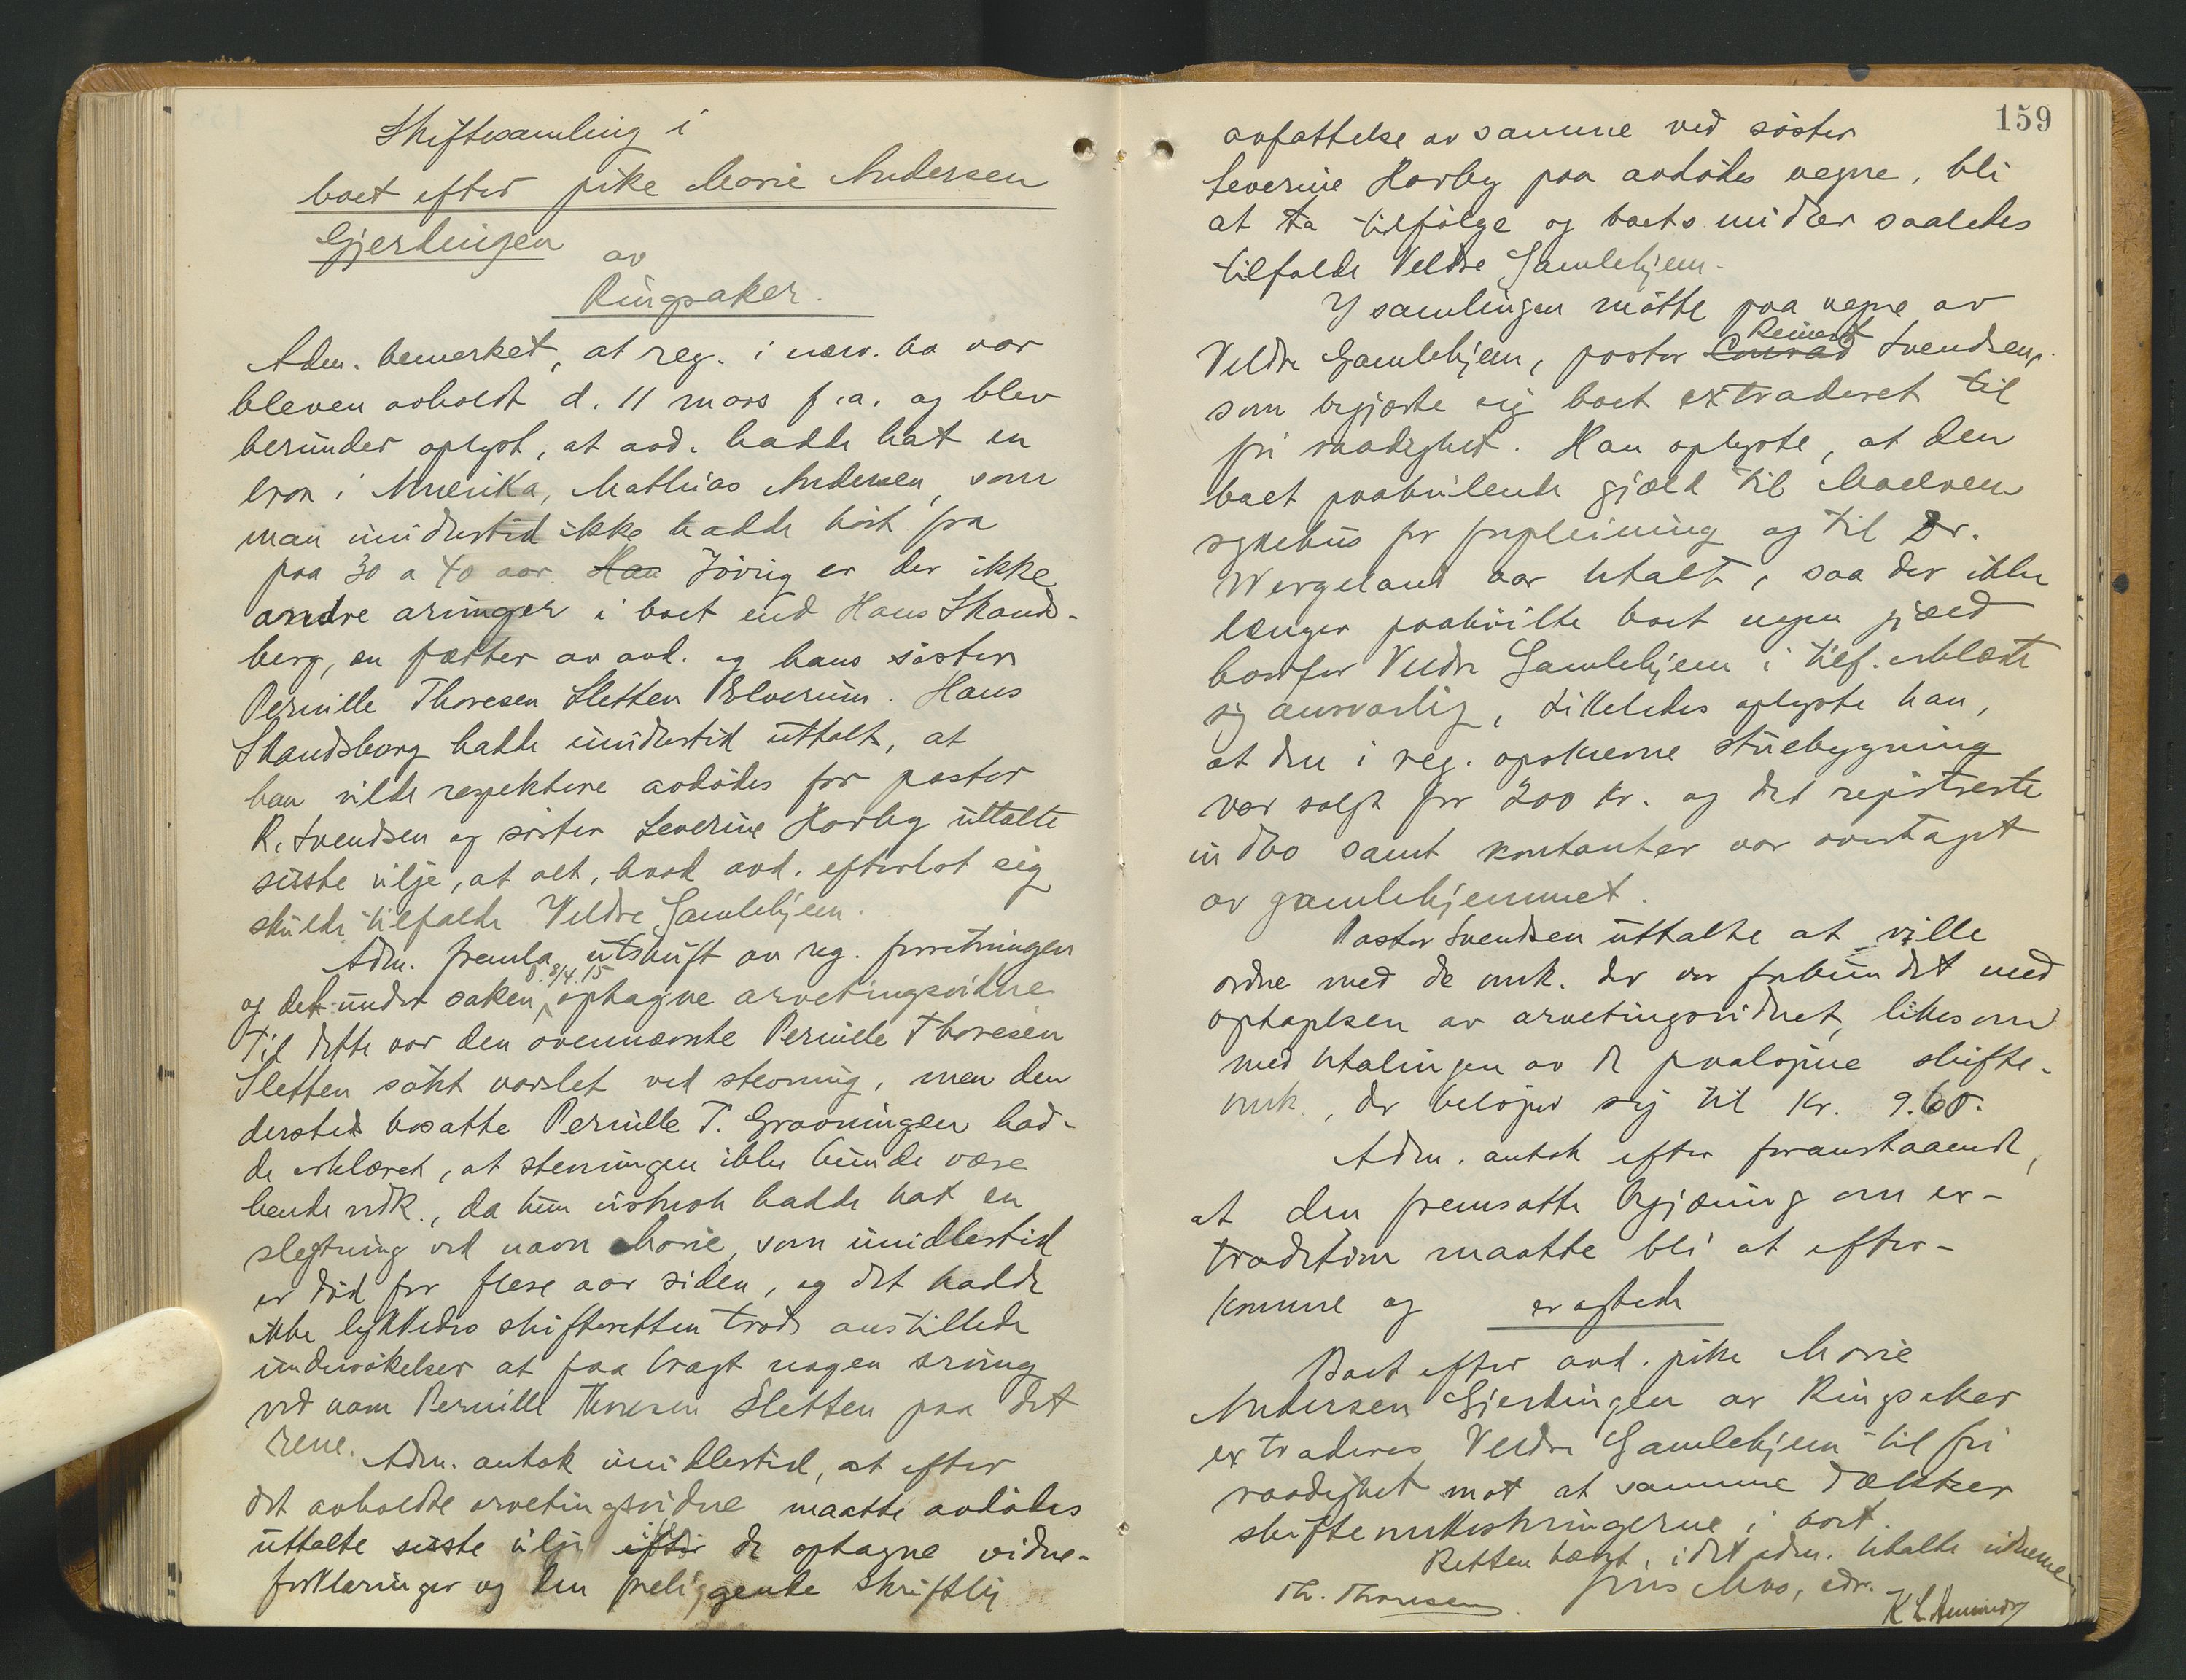 Skiftesamling i
boet efter pike Marie Andersen
Gjerlingen
av
Ringsaker.
Adm. bemerket, at reg. i nærv. bo var
bleven avholdt d. 11 mars f.a. og blev
herunder oplyst, at avd. hadde hat en
bror i Amerika, Mathias Andersen, som
man imidlertid ikke hadde hört fra
paa 30 a 40 aar. Han Iövrig er der ikke
andre arvinger i boet end Hans Skands-
berg, en fætter av avd. og hans söster
Pernille Thoresen Sletten Elverum. Hans
Skandsberg hadde imidlertid uttalt, at
han vilde respektere avdödes for pastor
R. Svendsen og söster Severine Harby uttalte
siste vilje, at alt, hvad avd. efterlot sig
skulde tilfalde Veldre Gamlehjem.
Adm. fremla utskrift av reg. forretningen
d. 8/4.15
og det under saken optagne arvetingsvidne
Til dette var den ovennævnte Pernille Thoresen
Sletten sökt varslet ved stevning, men den
dersteds bosatte Pernille T. Gravningen had-
de erklæret, at stevningen ikke kunde være
hende vedk., da hun vistnok hadde hat en
slegtning ved navn Marie, som imidlertid
er död for flere aar siden, og det hadde
ikke lykkedes skifteretten trods anstillede
undersökelser at faa bragt nogen arving
ved navn Pernille Thoresen Sletten paa det
rene.
Adm. antok imidlertid, at efter
det avholdte arvetingsvidne maatte avdödes
uttalte siste vilje efter de optagne vidne-
forklaringer og den foreliggende skriftlig
159
avfattelse av samme ved söster
Severine Harby paa avdödes vegne, bli
at ta tilfölge og boets midler saaledes
tilfalde Veldre Gamlehjem.
I samlingen mötte paa vegne av
Reinert
Veldre Gamlehjem, pastor Conrad Svendsen,
som begjærte sig boet extraderet til
fri raadighet. Han oplyste, at den
boet paahvilende gjæld til Moelven
sykehus for forpleining og til Dr.
Wergeland var betalt, saa der ikke
længer paahvilte boet nogen gjæld
hvorfor Veldre Gamlehjem i tilf. erklærte
sig ansvarlig, likeledes oplyste han,
at den i reg. opskrevne stuebygning
var solgt for 200 kr. og det registrerte
indbo samt kontanter var overtaget
av gamlehjemmet.
Pastor Svendsen uttalte at ville
ordne med de omk. der var forbundet med
optagelsen av arvetingsvidnet, likesom
med betalingen av de paalöpne skifte-
omk., der belöper sig til kr. 9.60.
Adm. antok efter foranstaaende,
at den fremsatte begjæring om ex-
tradition maatte bli at efter-
komme og eragtede
Boet efter avd. pike Marie
Andersen Gjerlingen av Ringsaker
extraderes Veldre Gamlehjem til fri
raadighet mot at samme dækker
skifteomkostningerne i boet.
Retten hævet, idet adm. betalte vidnerne
Jens Moo, edr.
Th. Thoresen